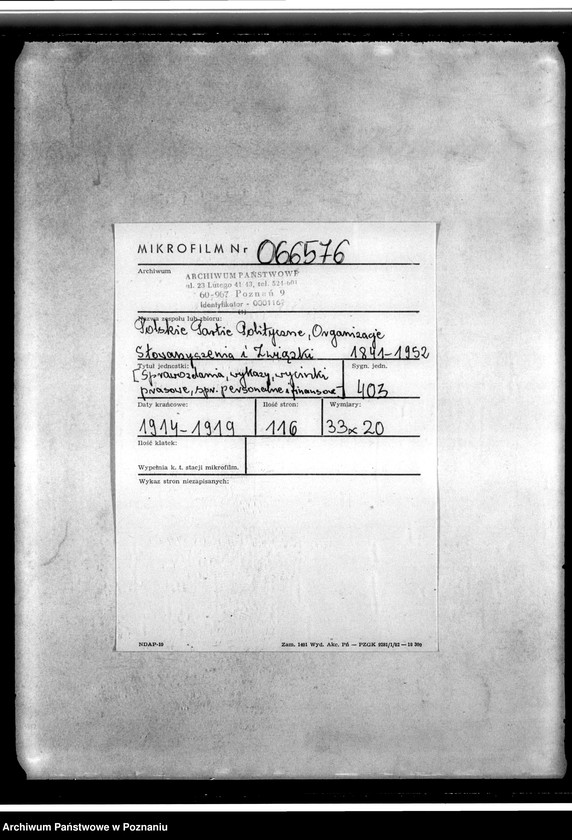 MIKROFILM Nr 066576
Archiwum
ARCHIWUM PAŃSTWOWE
ul. 23 Lutego 41/43, tel. 524-601
60-967 Poznań 9
Identyfikator - 000116
Nazwa zespołu lub zbioru:
Polskie Partie Polityczne, Organizacje
Stowarzyszenia i Związki 1841-1952
Tytuł jednostki: Sygn. jedn.
[Sprawozdania, wykazy, wycinki
prasowe, spr. personalne i finansowe] 403
Daty krańcowe: Ilość stron: Wymiary:
1914-1919 116 33x20
Ilość klatek:
Wypełnia k. t. stacji mikrofilm.
Wykaz stron niezapisanych:
NDAP-10 Zam. 1401 Wyd. Akc. Pń — PZGK
Archiwum Państwowe w Poznaniu